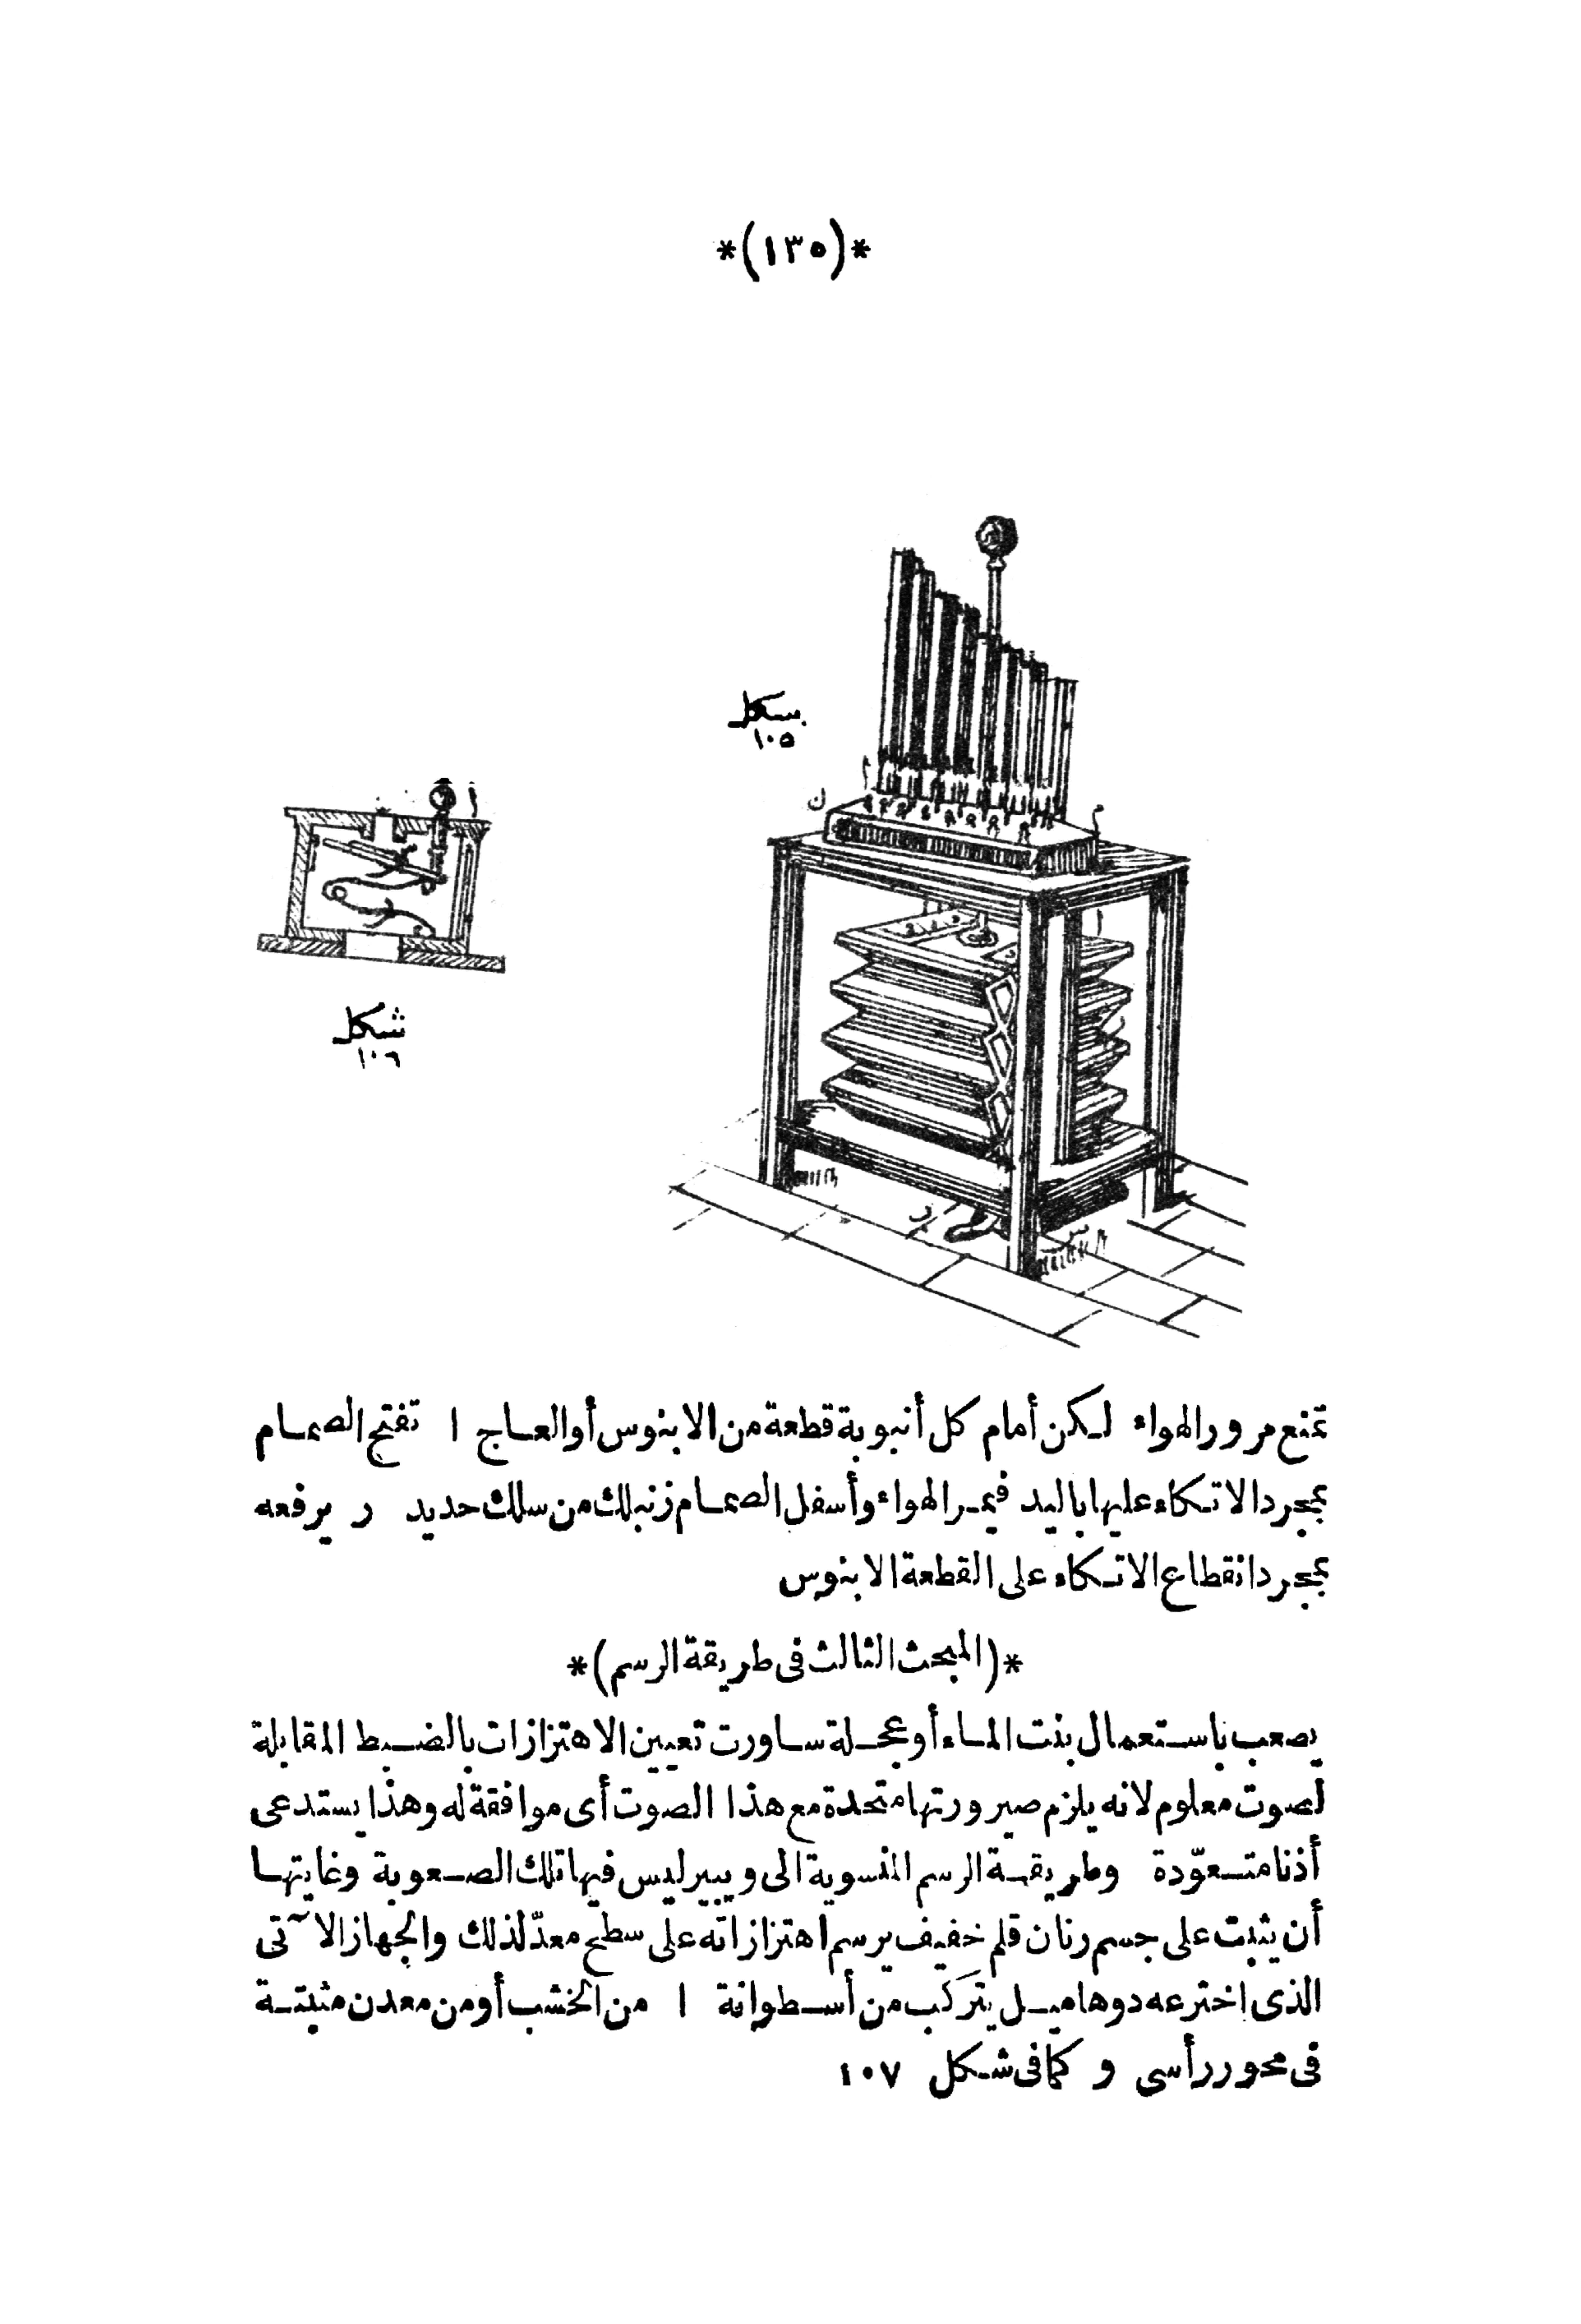 *(١٣٥)*
شكل
١٠٥
ا
ن
م
ا
شكل
١٠٦
ر
س
تمنع مرور الهواء لكن أمام كل أنبوبة قطعة من الابنوس أو العاج ا تفتح الصمام
بمجرد الاتكاء عليها باليد فيمر الهواء وأسفل الصمام زنبلك من سلك حديد ر يرفعه
بمجرد انقطاع الاتكاء على القطعة الابنوس
*(المبحث الثالث فى طريقة الرسم)*
يصعب باستعمال بنت الماء أو عجلة ساورت تعيين الاهتزازات بالضبط المقابلة
لصوت معلوم لانه يلزم صيرورتها متحدة مع هذا الصوت أى موافقة له وهذا يستدعى
أذنا متعوّدة وطريقة الرسم المنسوبة الى ويبير ليس فيها تلك الصعوبة وغايتها
أن يثبت على جسم رنان قلم خفيف يرسم اهتزازاته على سطح معدّ لذلك والجهاز الآتى
الذى اخترعه دوهاميل يتركب من أسطوانة ا من الخشب أو من معدن مثبتة
فى محور رأسى و كما فى شكل ١٠٧